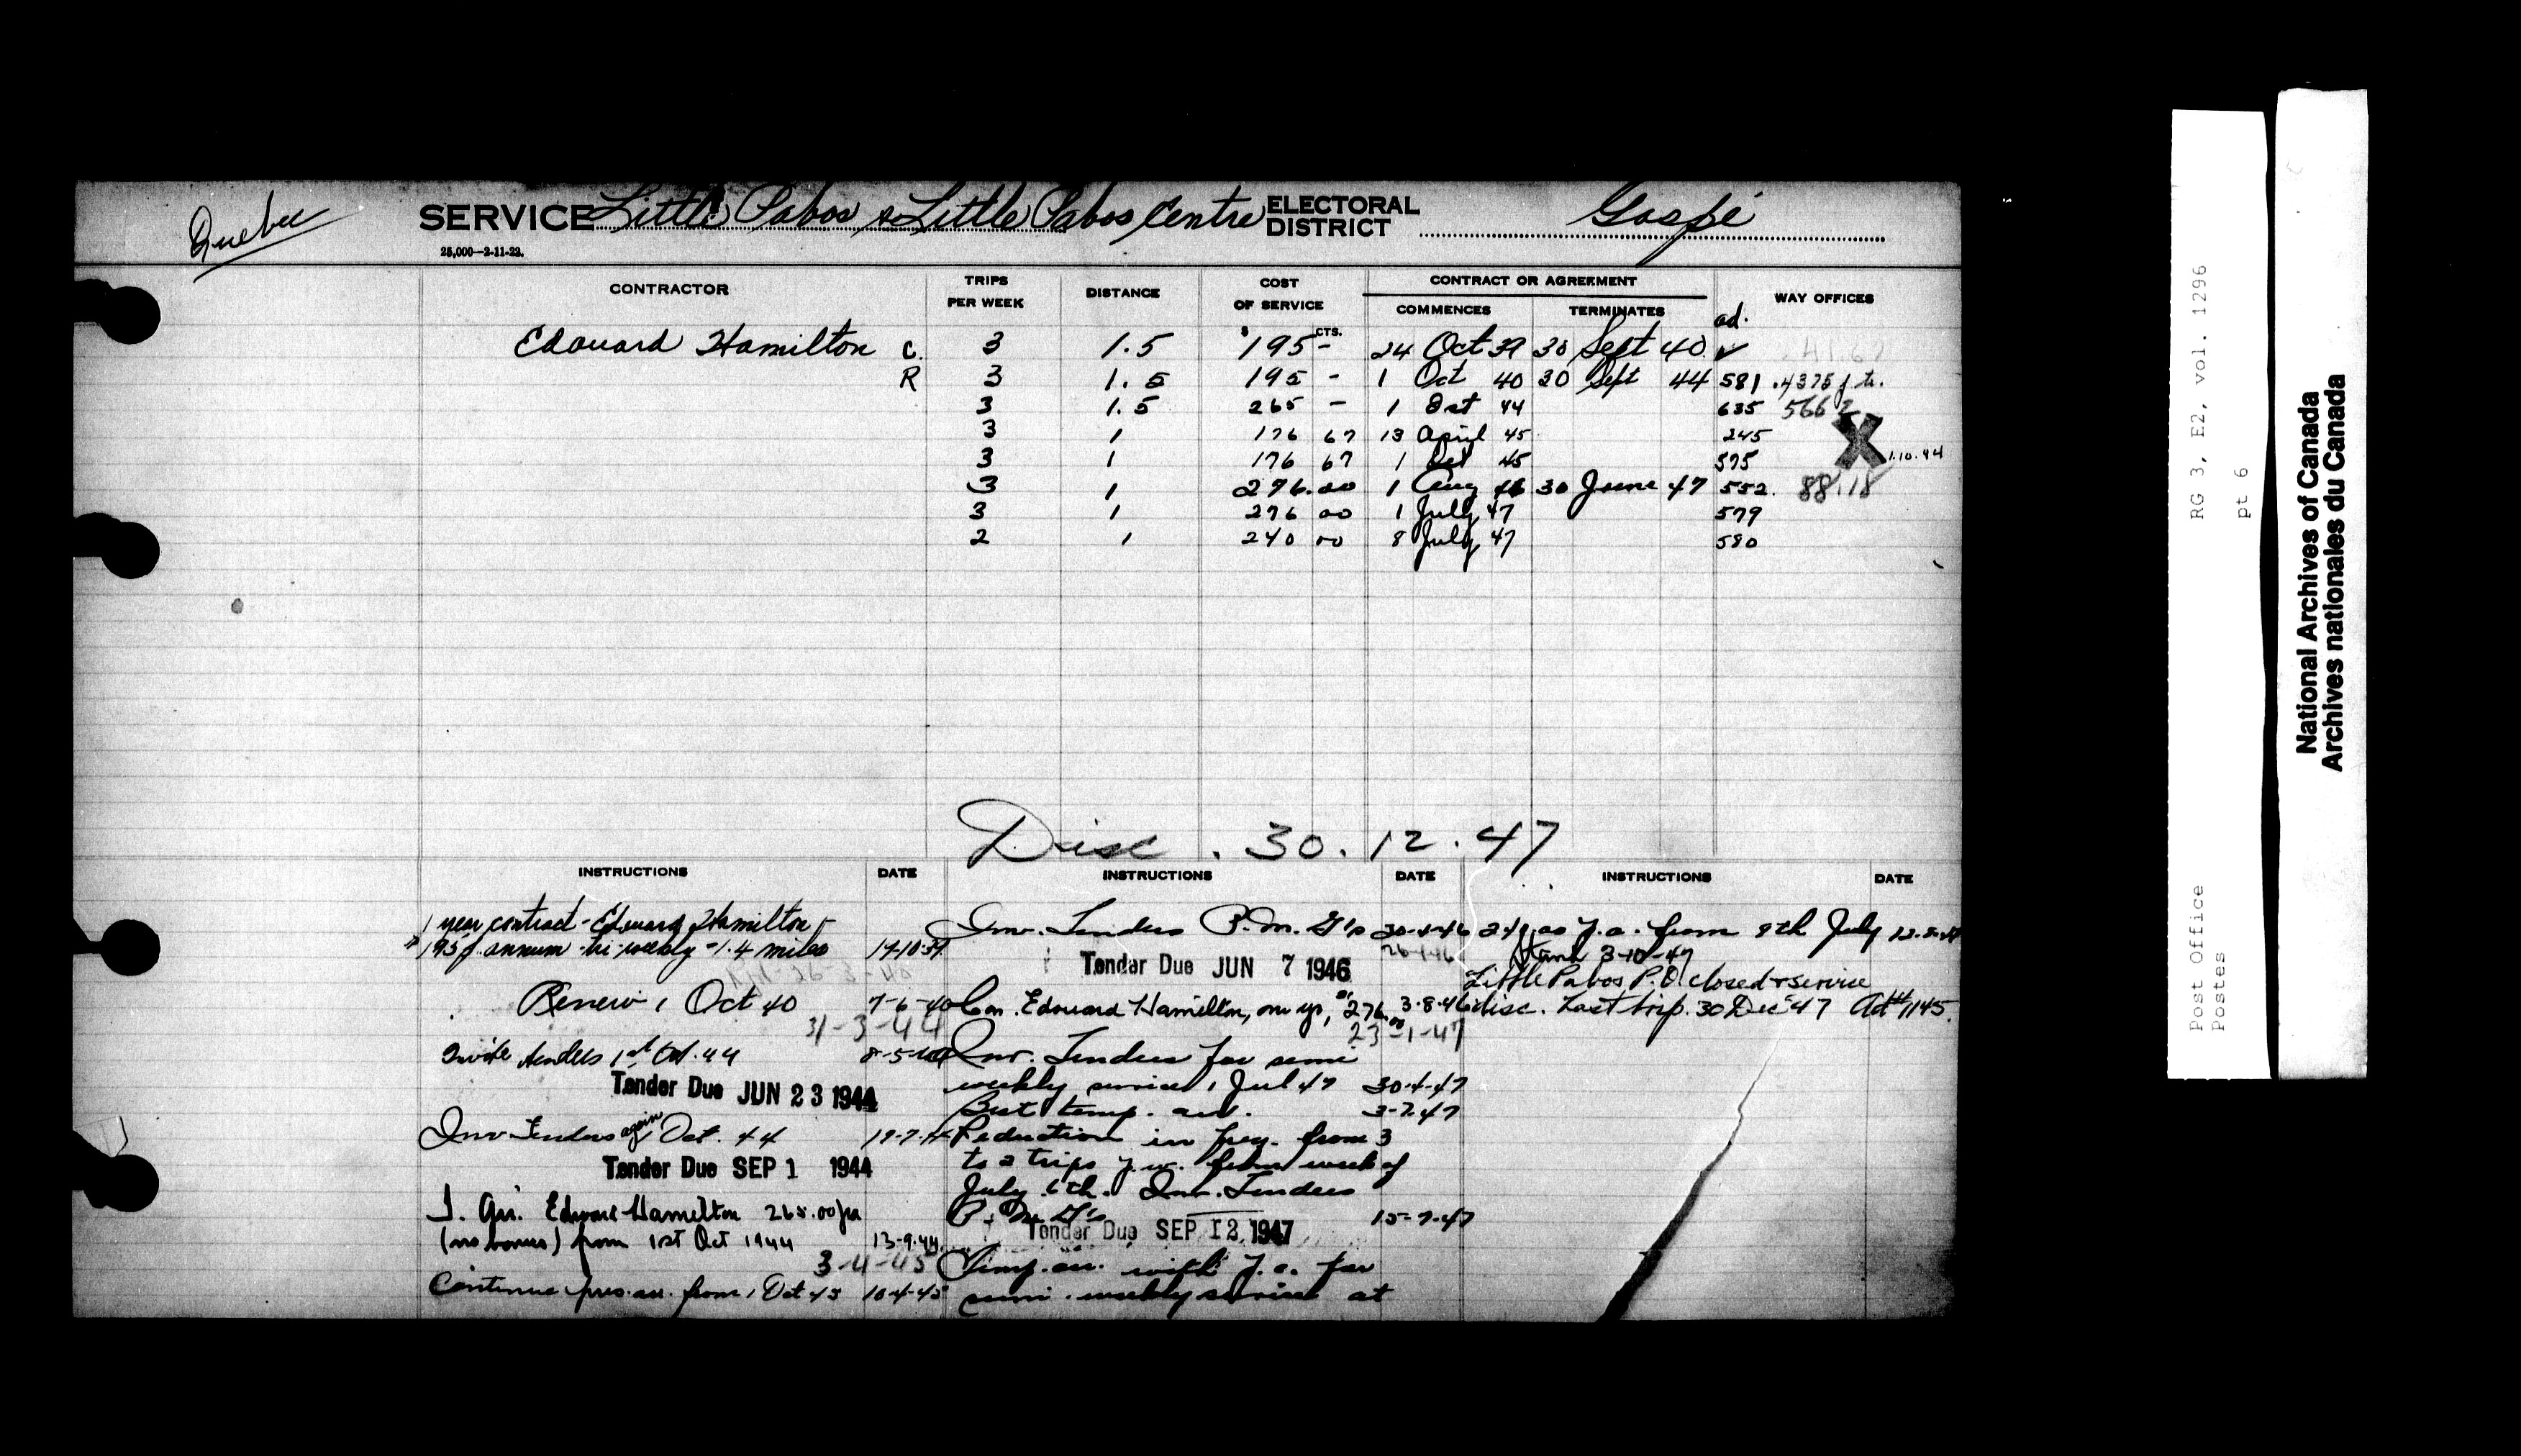 Quebec
SERVICE Little Pabos & Little Pabos Centre ELECTORAL DISTRICT Gaspé
25,000—2-11-22.
CONTRACTOR TRIPS PER WEEK DISTANCE COST OF SERVICE CONTRACT OR AGREEMENT WAY OFFICES
COMMENCES TERMINATES ad.
$ CTS.
Edouard Hamilton C. 3 1.5 195 - 24 Oct 39 30 Sept 40 ✓ 41.67
R 3 1.5 195 - 1 Oct 40 30 Sept 44 581 .4375
3 1.5 265 - 1 Oct 44 635 566
3 1 176 67 13 April 45 245 X
3 1 176 67 1 Oct 45 595 1.10.44
3 1 276.00 1 Aug 46 30 June 47 552. 88.18
3 1 276 00 1 July 47 579
2 1 240 00 8 July 47 580
Disc. 30.12.47
INSTRUCTIONS DATE
1 year contract - Edouard Hamilton -
195 p. annum - tri-weekly - 1.4 miles 17-10-39
Renew 1 Oct 40 7-6-40
31-3-44
Invite tenders 1st Oct. 44 8-5-44
Tender Due JUN 23 1944
Inv Tenders again Oct. 44 19-7-44
Tender Due SEP 1 1944
T. Arr. Edouard Hamilton 265.00 pa
(no bonus) from 1st Oct 1944 13-9-44
3-4-45
Continue pres. arr. from 1 Oct 45 10-4-45
INSTRUCTIONS DATE
Inv. Tenders P.M. G's 30-4-46
Tender Due JUN 7 1946
Con. Edouard Hamilton, one yr, 276.00 3-8-46
23-1-47
Inv. Tenders for semi
weekly service 1 Jul 47 30-4-47
But temp. arr. 3-7-47
Reduction in freq. from 3
to 2 trips p.w. from week of
July 6th. Inv. Tenders
P. M. G's 15-7-47
Tender Due SEP 12 1947
Temp. arr. with p.c. for
semi-weekly service at
INSTRUCTIONS DATE
240 p.a. from 8th July
3-10-47
Little Pabos P.O. closed & service
disc. Last trip. 30 Dec 47 Ad# 1145.
RG 3, E2, vol. 1296
pt 6
Post Office
Postes
National Archives of Canada
Archives nationales du Canada